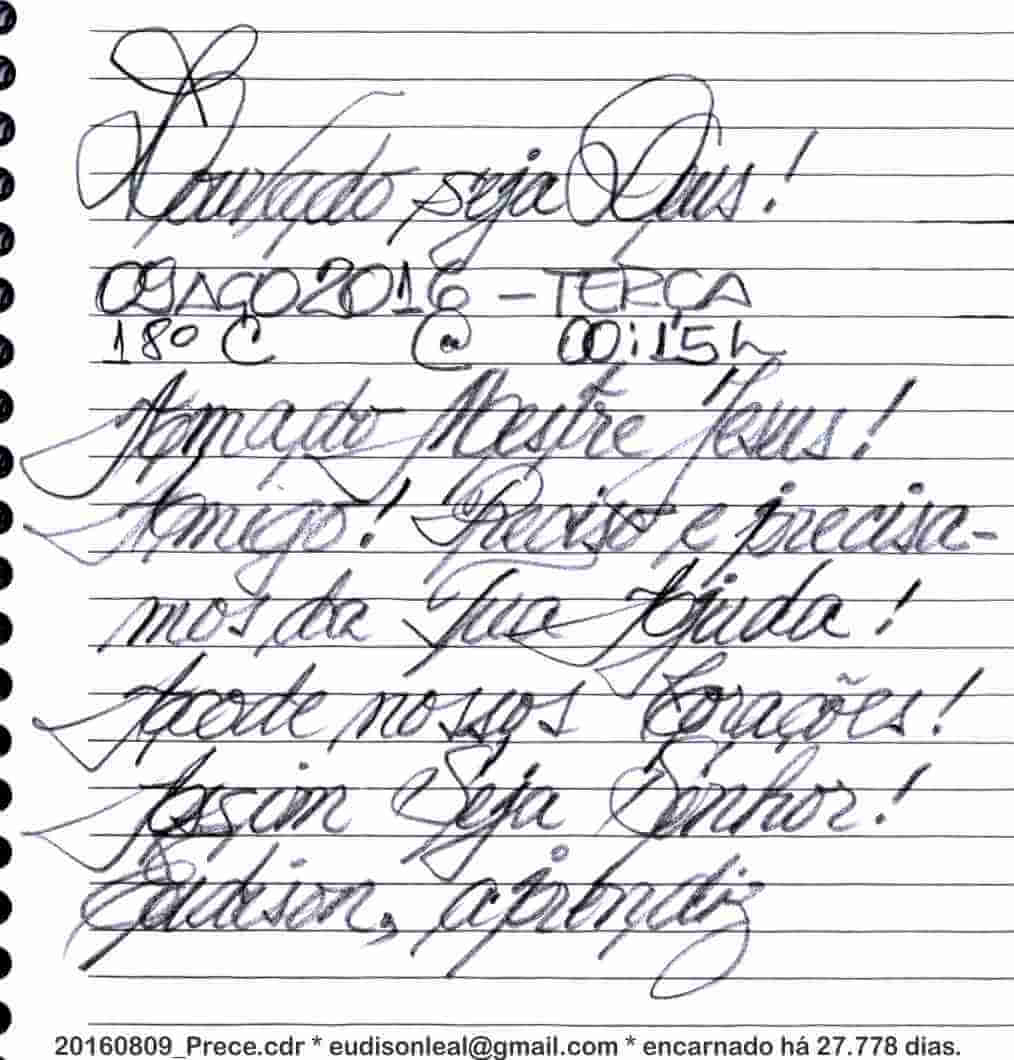 Louvado seja Deus!
09AGO2016 - TERÇA
18º C @ 00:15h
Amado Mestre Jesus!
Amigo! Preciso e precisa-
mos da Tua Ajuda!
Acode nossos Corações!
Assim Seja Senhor!
Eudison, aprendiz
20160809_Prece.cdr * eudisonleal@gmail.com * encarnado há 27.778 dias.